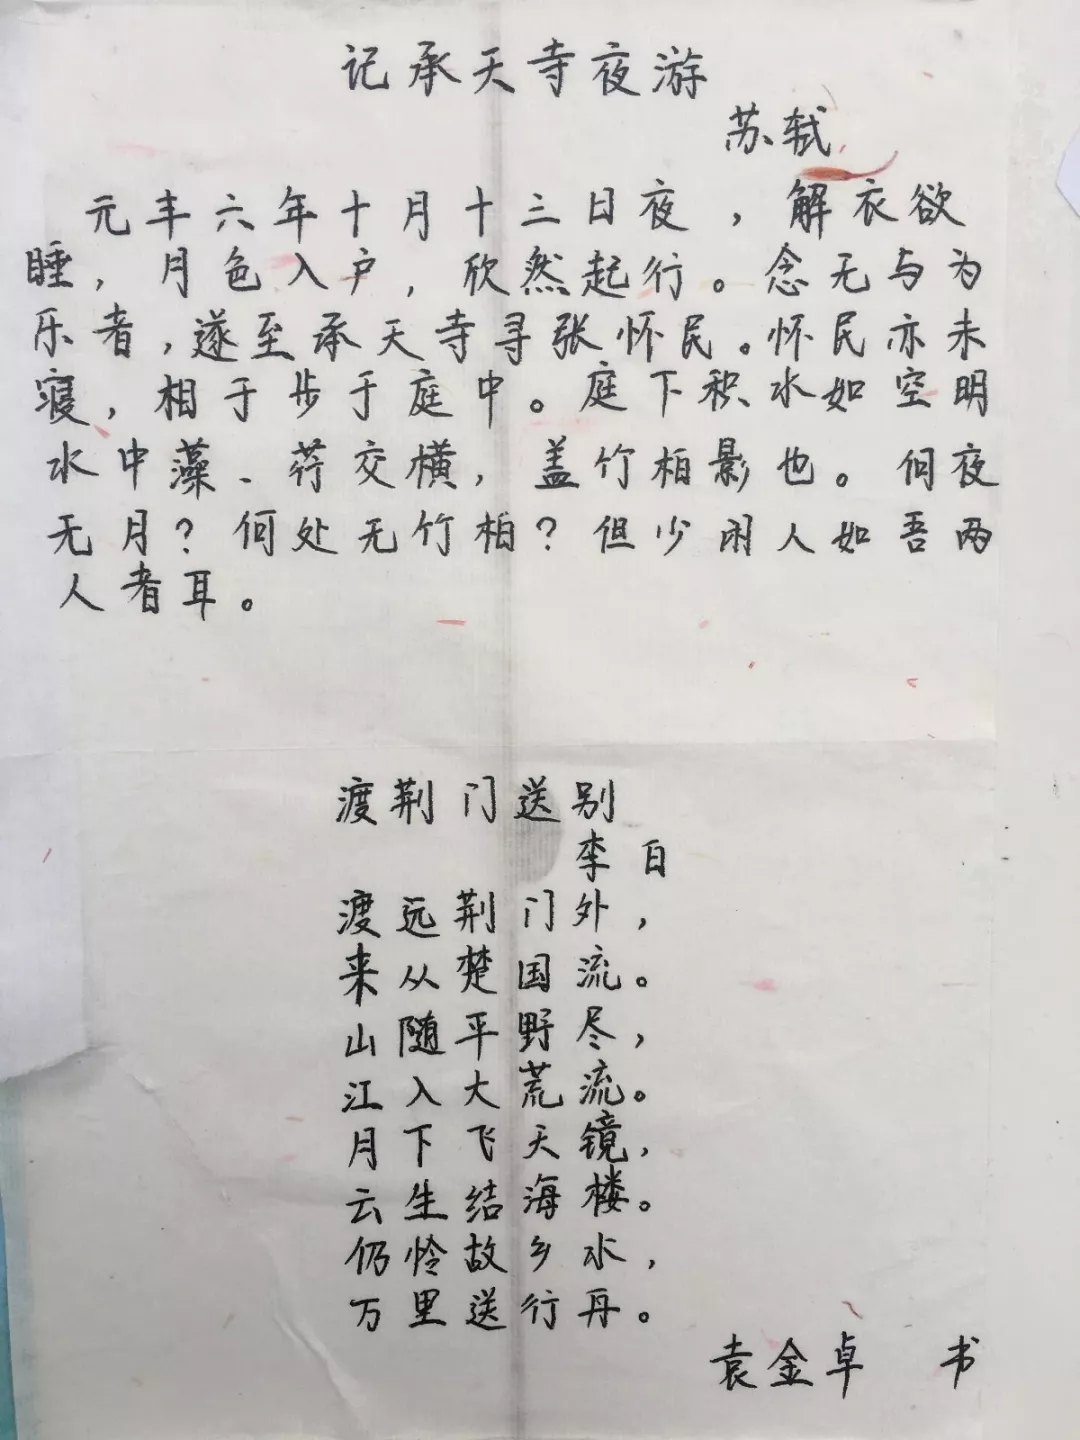 记承天寺夜游
苏轼
元丰六年十月十三日夜，解衣欲
睡，月色入户，欣然起行。念无与为
乐者，遂至承天寺寻张怀民。怀民亦未
寝，相于步于庭中。庭下积水如空明
水中藻、荇交横，盖竹柏影也。何夜
无月？何处无竹柏？但少闲人如吾两
人者耳。
渡荆门送别
李白
渡远荆门外，
来从楚国流。
山随平野尽，
江入大荒流。
月下飞天镜，
云生结海楼。
仍怜故乡水，
万里送行舟。
袁金卓 书